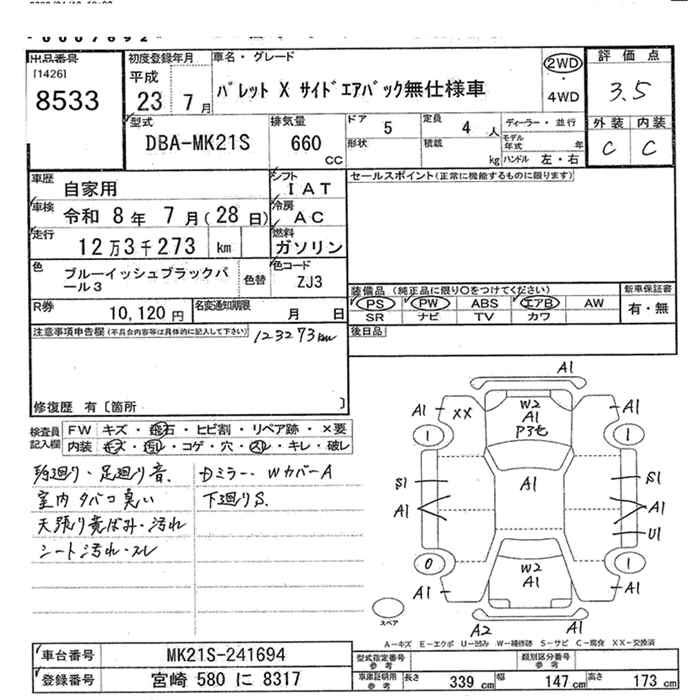 出品番号
[1426]
8533
初度登録年月
平成
23 7月
車名・グレード
パレット X サイドエアバック無仕様車
2WD
・
4WD
評価点
3.5
外装 内装
C C
型式
DBA-MK21S
排気量
660
CC
ドア 5
形状
定員 4 人
積載 kg
ディーラー・並行
モデル年式 年
ハンドル 左・右
車歴
自家用
シフト
IAT
セールスポイント(正常に機能するものに限ります)
車検
令和 8年 7月(28日)
冷房
AC
走行
12万3千273 km
燃料
ガソリン
色
ブルーイッシュブラックパール3
色替
色コード
ZJ3
装備品(純正品に限り○をつけてください)
PS PW ABS エアB AW
SR ナビ TV カワ
新車保証書
有・無
R券
10,120円
名変通知期限
月 日
後日品
注意事項申告欄(不具合内容等は具体的に記入して下さい)
123273km
修復歴 有〔箇所 〕
検査員記入欄
FW キズ・飛石・ヒビ割・リペア跡・×要
内装 キズ・汚れ・コゲ・穴・スレ・キレ・破レ
足廻り音
室内タバコ臭い
天張り黄ばみ・汚れ
シート汚れ・スレ
Dミラー・WカバーA
下廻りS
A1
A1 XX W2 A1
A1
P3も
1 1
S1 A1 S1
A1 A1
U1
0 W2 1
A1 A1 A1
A2 A1
スペア
A−キズ E−エクボ U−凹み W−補修跡 S−サビ C−腐食 XX−交換済
車台番号
MK21S-241694
登録番号
宮崎 580 に 8317
型式指定番号
参考
類別区分番号
参考
車庫証明用
参考
長さ 339 cm
幅 147 cm
高さ 173 cm